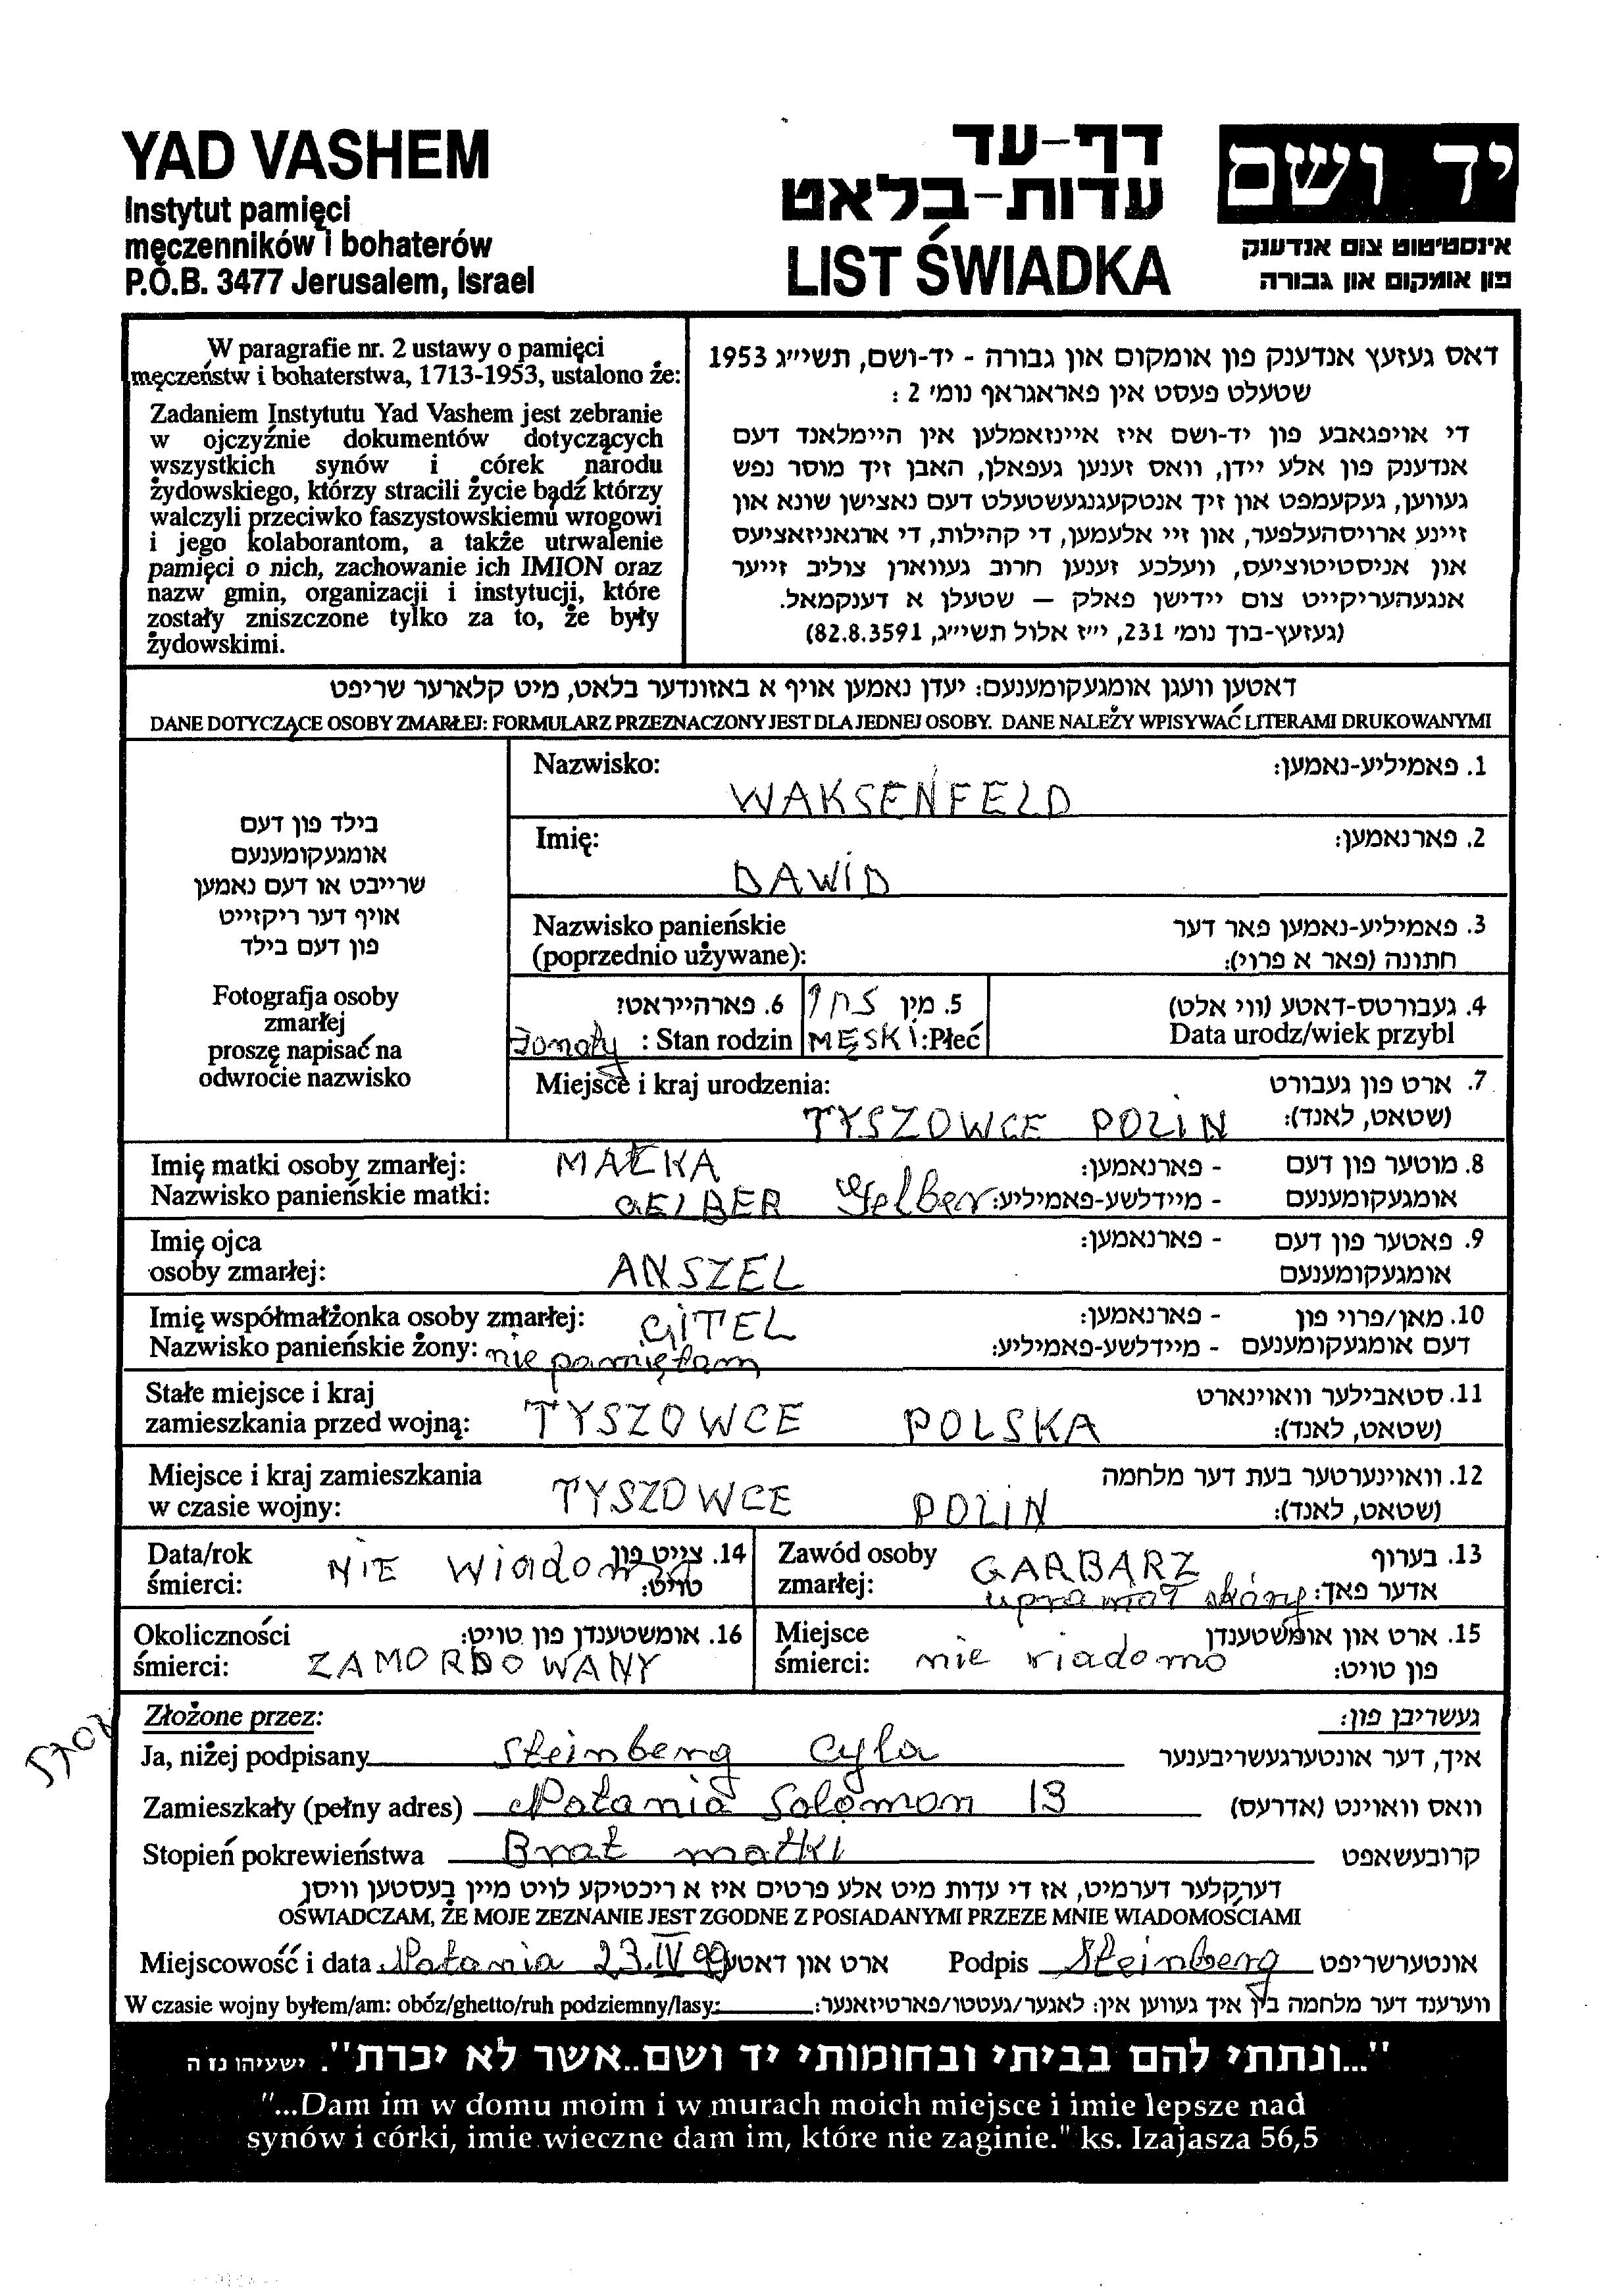 YAD VASHEM
Instytut pamięci
męczenników i bohaterów
P.O.B. 3477 Jerusalem, Israel
דף-עד
עדות-בלאט
LIST ŚWIADKA
יד ושם
אינסטיטוט צום אנדענק
פון אומקום און גבורה
W paragrafie nr. 2 ustawy o pamięci
męczeństw i bohaterstwa, 1713-1953, ustalono że:
Zadaniem Instytutu Yad Vashem jest zebranie
w ojczyźnie dokumentów dotyczących
wszystkich synów i córek narodu
żydowskiego, którzy stracili życie bądź którzy
walczyli przeciwko faszystowskiemu wrogowi
i jego kolaborantom, a także utrwalenie
pamięci o nich, zachowanie ich IMION oraz
nazw gmin, organizacji i instytucji, które
zostały zniszczone tylko za to, że były
żydowskimi.
דאס געזעץ אנדענק פון אומקום און גבורה - יד-ושם, תשי״ג 1953
שטעלט פעסט אין פאראגראף נומ׳ 2 :
די אויפגאבע פון יד-ושם איז איינזאמלען אין היימלאנד דעם
אנדענק פון אלע יידן, וואס זענען געפאלן, האבן זיך מוסר נפש
געווען, געקעמפט און זיך אנטקעגנגעשטעלט דעם נאצישן שונא און
זיינע ארויסהעלפער, און זיי אלעמען, די קהילות, די ארגאניזאציעס
און אניסטיטוציעס, וועלכע זענען חרוב געווארן צוליב זייער
אנגעהעריקייט צום יידישן פאלק – שטעלן א דענקמאל.
(געזעץ-בוך נומ׳ 231, י״ז אלול תשי״ג, 82.8.3591)
דאטען וועגן אומגעקומענעם: יעדן נאמען אויף א באזונדער בלאט, מיט קלארער שריפט
DANE DOTYCZĄCE OSOBY ZMARŁEJ: FORMULARZ PRZEZNACZONY JEST DLA JEDNEJ OSOBY. DANE NALEŻY WPISYWAĆ LITERAMI DRUKOWANYMI
בילד פון דעם
אומגעקומענעם
שרייבט או דעם נאמען
אויף דער ריקזייט
פון דעם בילד
Fotografja osoby
zmarłej
proszę napisać na
odwrocie nazwisko
Nazwisko: WAKSENFELD 1. פאמיליע-נאמען:
Imię: DAWID 2. פארנאמען:
Nazwisko panieńskie 3. פאמיליע-נאמען פאר דער
(poprzednio używane): חתונה (פאר א פרוי):
4. געבורטס-דאטע (ווי אלט)
Data urodz/wiek przybl
5. מין
MĘSKI :Płeć
6. פארהייראט?
żonaty : Stan rodzin
Miejsce i kraj urodzenia: 7. ארט פון געבורט
TYSZOWCE POLIN (שטאט, לאנד):
Imię matki osoby zmarłej: MAŁKA - פארנאמען: 8. מוטער פון דעם
Nazwisko panieńskie matki: GELBER Gelber - מיידלשע-פאמיליע: אומגעקומענעם
Imię ojca - פארנאמען: 9. פאטער פון דעם
osoby zmarłej: ANSZEL אומגעקומענעם
Imię współmałżonka osoby zmarłej: GITEL - פארנאמען: 10. מאן/פרוי פון
Nazwisko panieńskie żony: nie pamiętam - מיידלשע-פאמיליע: דעם אומגעקומענעם
Stałe miejsce i kraj 11. סטאבילער וואוינארט
zamieszkania przed wojną: TYSZOWCE POLSKA (שטאט, לאנד):
Miejsce i kraj zamieszkania 12. וואוינערטער בעת דער מלחמה
w czasie wojny: TYSZOWCE POLIN (שטאט, לאנד):
Data/rok 14. צייט פון
śmierci: NIE Wiadomo טויט:
Zawód osoby GARBARZ 13. בערוף
zmarłej: אדער פאך:
Okoliczności 16. אומשטענדן פון טויט:
śmierci: ZAMORDOWANY
Miejsce 15. ארט און אומשטענדן
śmierci: nie wiadomo פון טויט:
Złożone przez: געשריבן פון:
Ja, niżej podpisany Steinberg Cyla איך, דער אונטערגעשריבענער
Zamieszkały (pełny adres) Natania Solomon 13 וואס וואוינט (אדרעס)
Stopień pokrewieństwa Brat matki קרובעשאפט
דערקלער דערמיט, אז די עדות מיט אלע פרטים איז א ריכטיקע לויט מיין בעסטען וויסן
OŚWIADCZAM, ŻE MOJE ZEZNANIE JEST ZGODNE Z POSIADANYMI PRZEZE MNIE WIADOMOŚCIAMI
Miejscowość i data Natania 23.IV 99 ארט און דאטע Podpis Steinberg אונטערשריפט
W czasie wojny byłem/am: obóz/ghetto/ruh podziemny/lasy: ווערענד דער מלחמה בין איך געווען אין: לאגער/געטטו/פארטיזאנער:
"...ונתתי להם בביתי ובחומותי יד ושם..אשר לא יכרת". ישעיהו נז ה
"...Dam im w domu moim i w murach moich miejsce i imie lepsze nad
synów i córki, imie wieczne dam im, które nie zaginie." ks. Izajasza 56,5